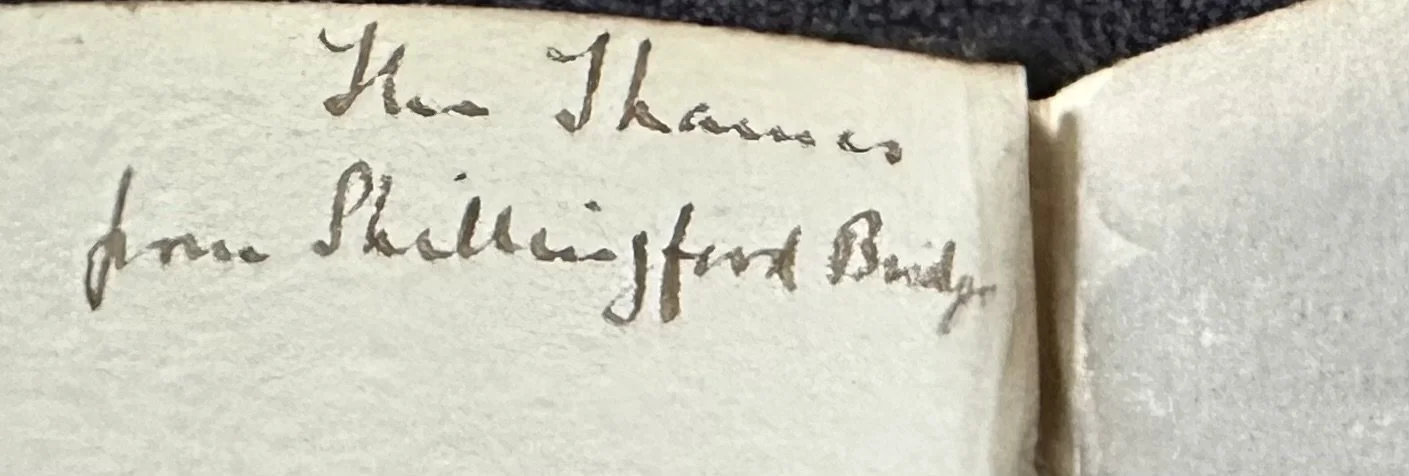 The Thames
from Shillingford Bridge